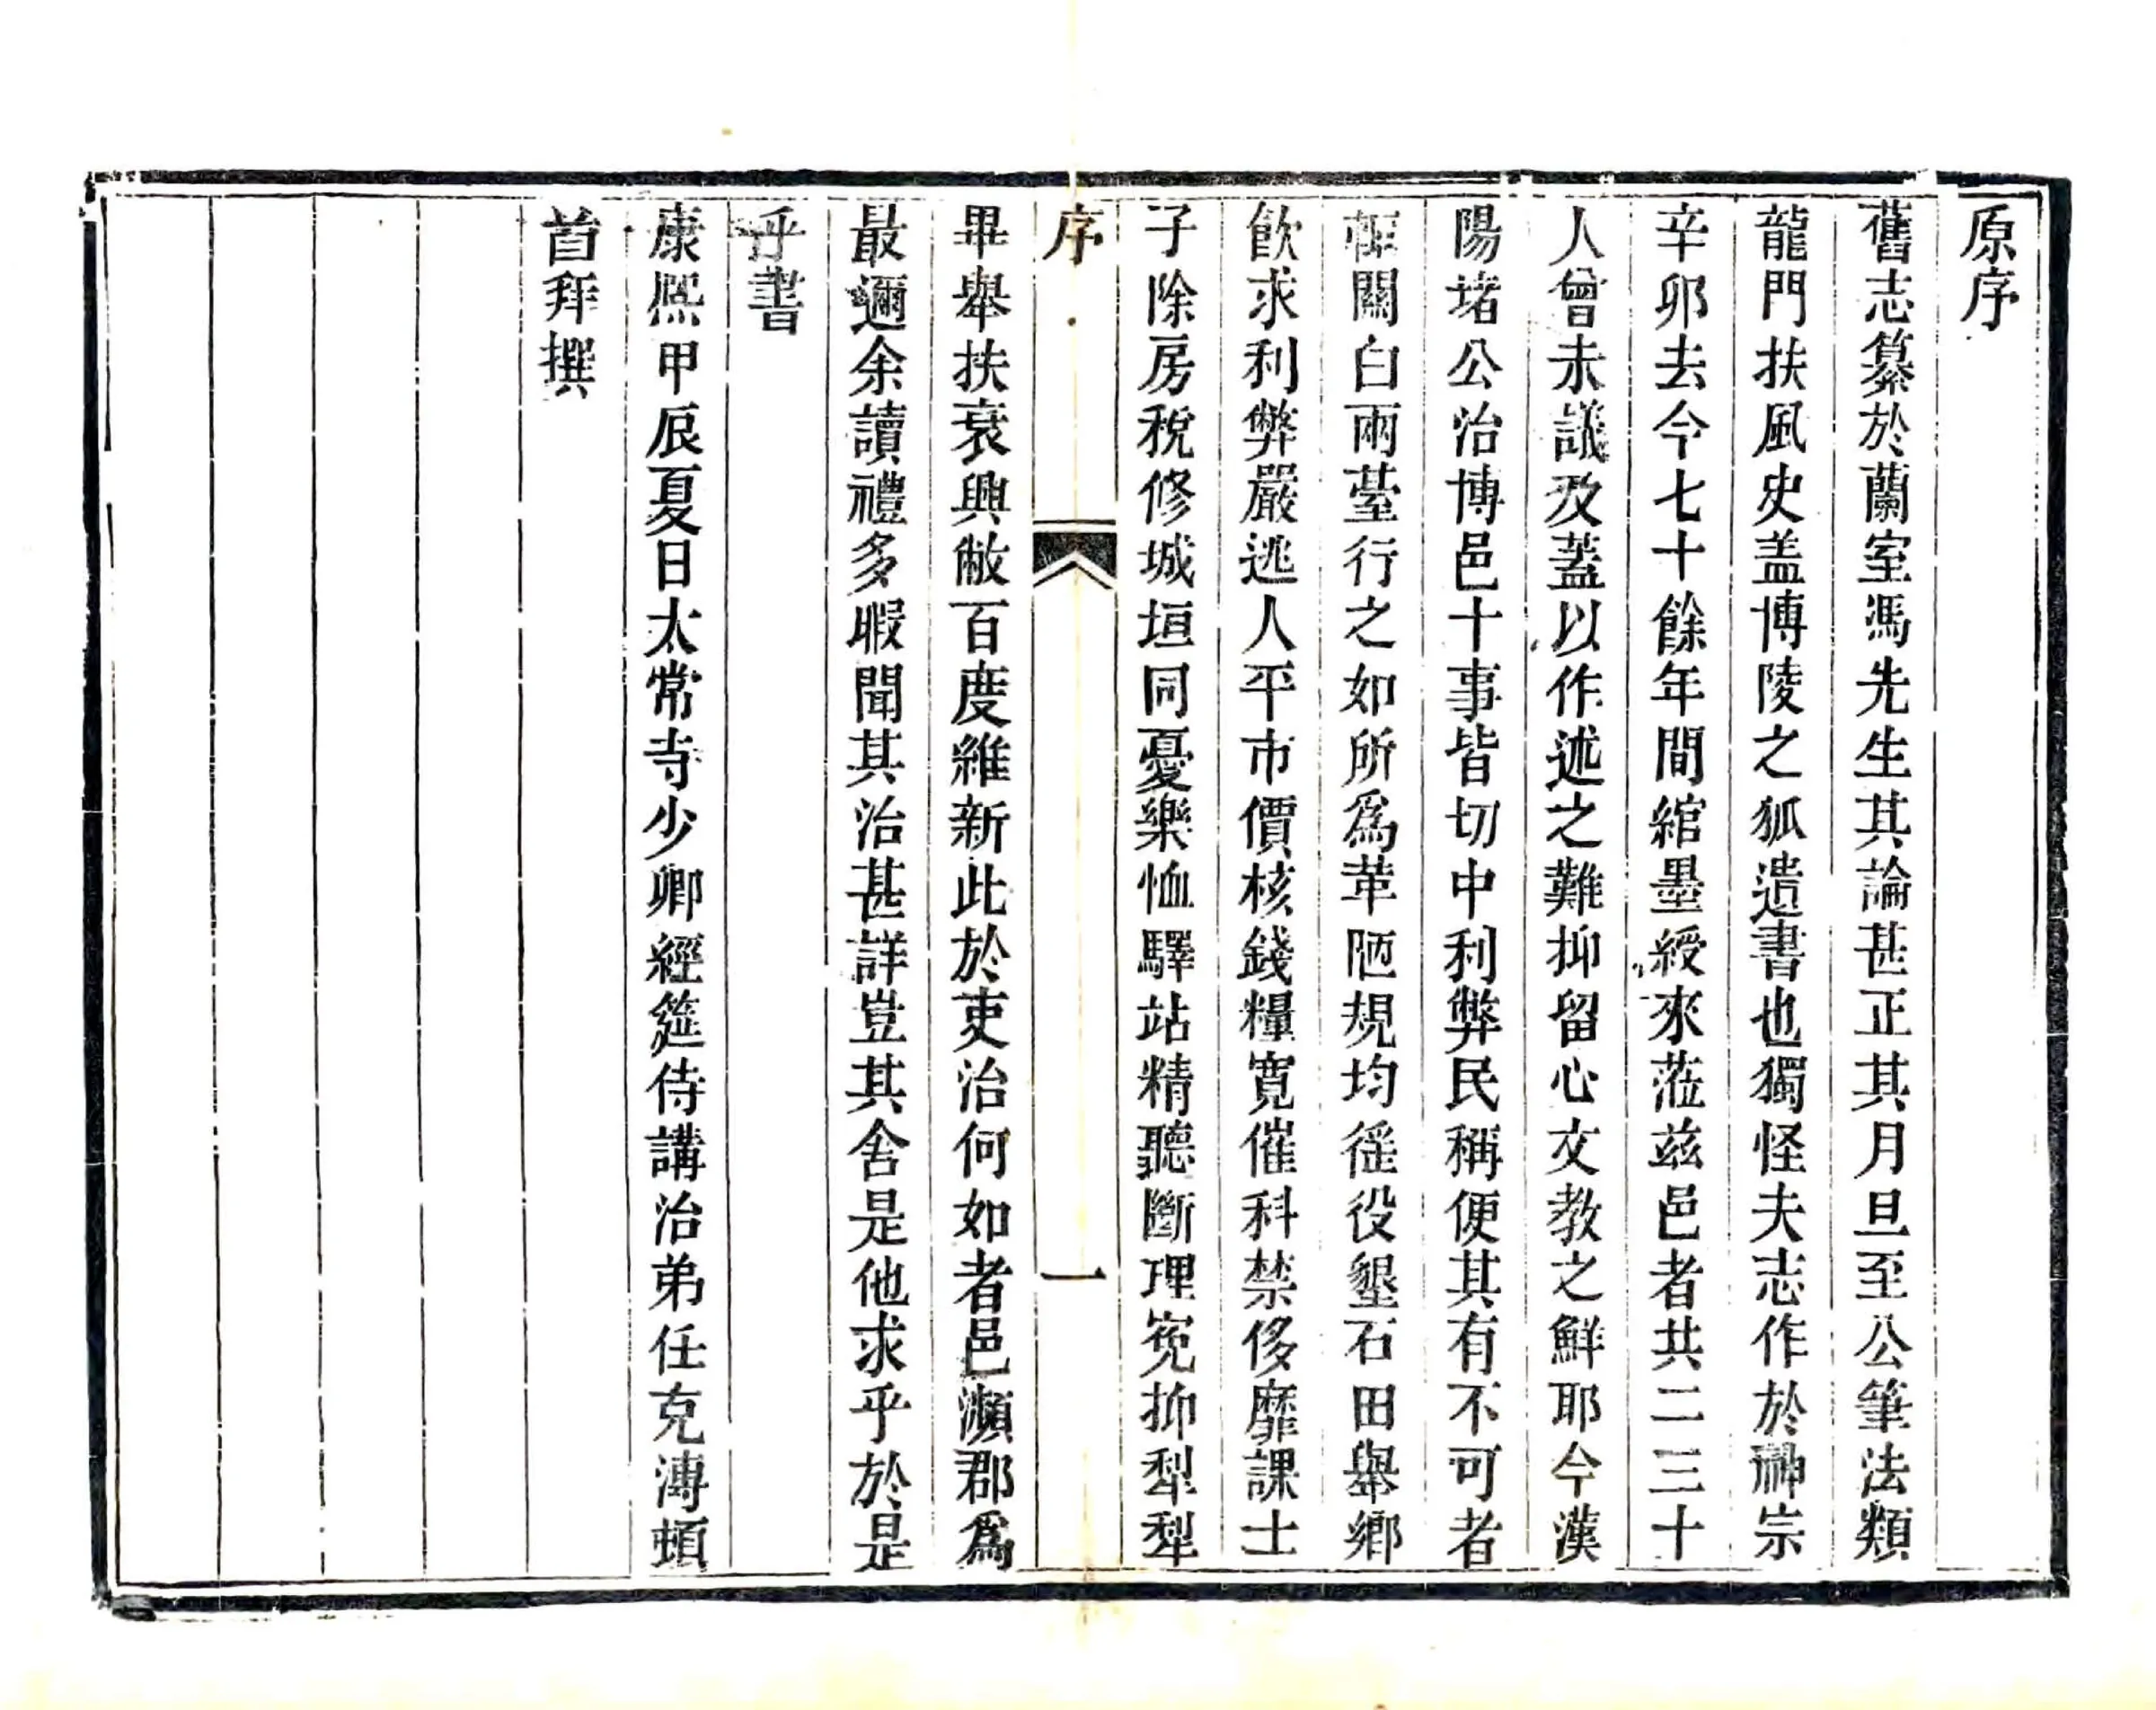 原序
舊志纂於蘭室馮先生其論甚正其月旦至公筆法類
龍門扶風史盖博陵之狐遺書也獨怪夫志作於神宗
辛卯去今七十餘年間綰墨綬來蒞茲邑者共二三十
人曾未議及蓋以作述之難抑留心文教之鮮耶今漢
陽堵公治博邑十事皆切中利弊民稱便其有不可者
輒關白兩臺行之如所爲革陋規均徭役墾石田舉鄉
飲求利弊嚴逃人平市價核錢糧寬催科禁侈靡課士
子除房稅修城垣同憂樂恤驛站精聽斷理冤抑犁犁
序
一
畢舉扶衰興敝百度維新此於吏治何如者邑瀕郡爲
最邇余讀禮多暇聞其治甚詳豈其舍是他求乎於是
乎書
康熙甲辰夏日太常寺少卿經筵侍講治弟任克溥頓
首拜撰